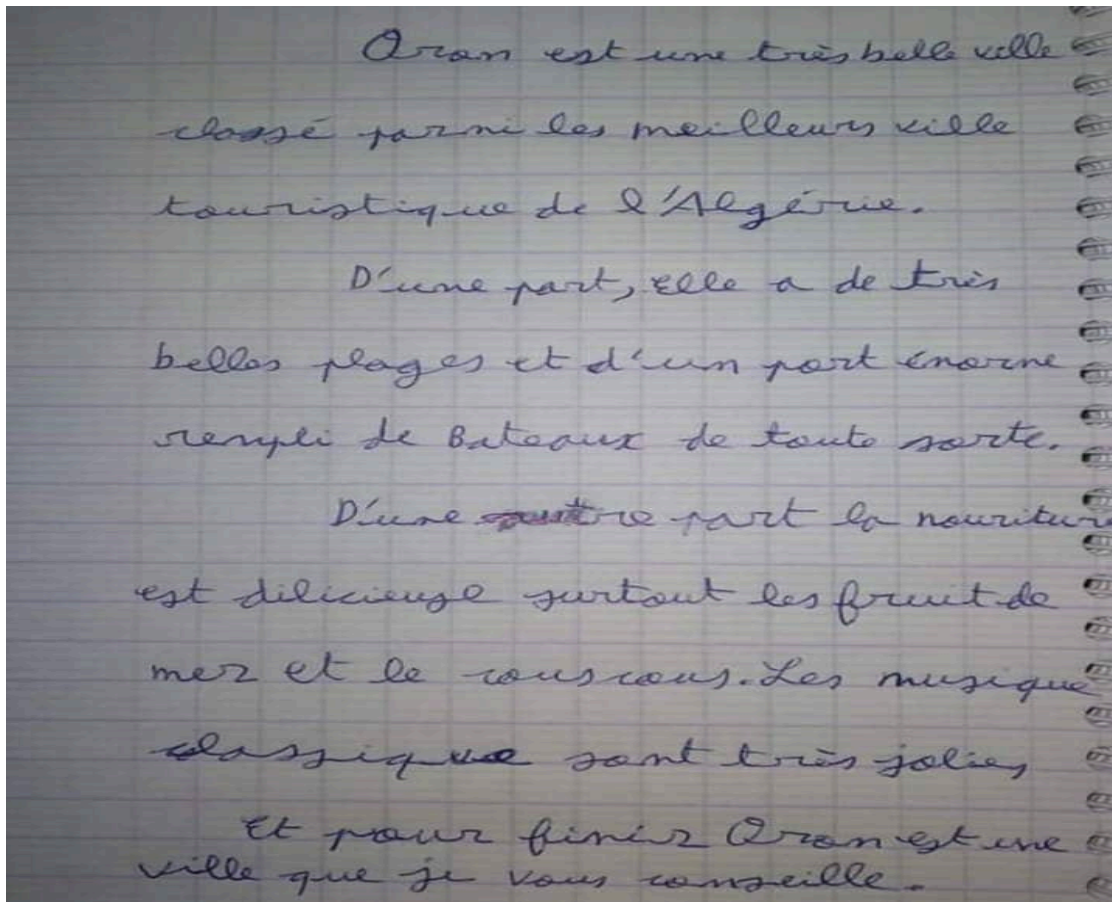 Oran est une très belle ville
classé parmi les meilleurs ville
touristique de l'Algérie.
D'une part, elle a de très
belles plages et d'un port énorme
rempli de Bateaux de toute sorte.
D'une autre part la nouriture
est dilicieuse surtout les fruit de
mer et le couscous. Les musique
classique sont très jolies
Et pour finir Oran est une
ville que je vous conseille.